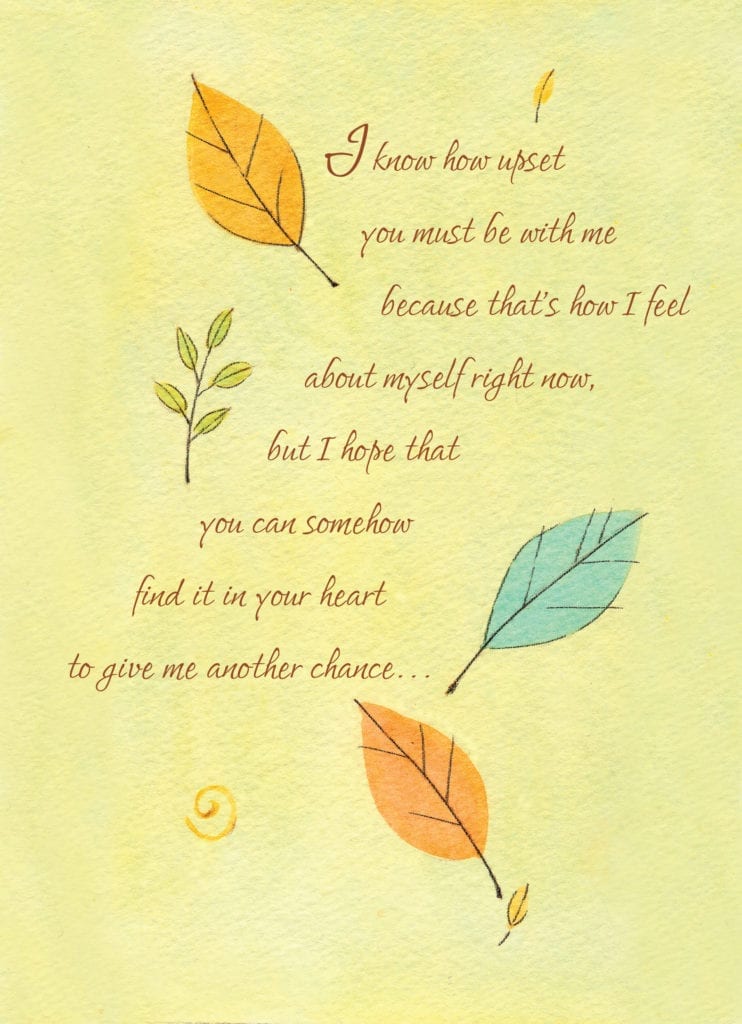 I know how upset
you must be with me
because that's how I feel
about myself right now,
but I hope that
you can somehow
find it in your heart
to give me another chance...